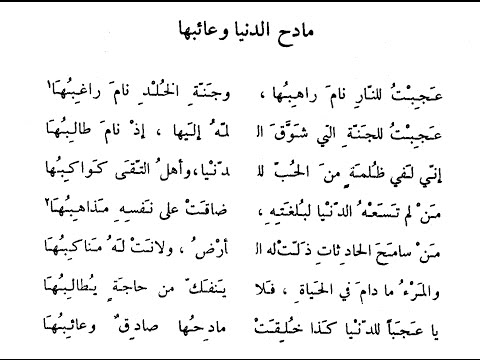 مادح الدنيا وعائبها
عَجِبْتُ للنّارِ نامَ راهِبُها ، وجَنّةِ الخُلْدِ نامَ راغِبُهَا١
عَجِبْتُ للجَنّةِ التي شَوّقَ الـ لّهُ إلَيها ، إذْ نامَ طالِبُهَا
إنّي لَفي ظُلمَةٍ منَ الحُبّ للـ دّنْيا، وأهلُ التّقَى كَواكِبُهَا
مَنْ لم تَسَعْهُ الدّنْيا لبُلغَتِهِ ، ضاقَتْ على نَفسِهِ مَذاهِبُهَا٢
مَنْ سامَحَ الحادِثاتِ ذَلّتْ له الـ أرْضُ ، ولانَتْ لَهُ مَناكِبُهَا
والمَرْءُ ما دامَ في الحَياةِ ، فَلا يَنفَكّ من حاجَةٍ يُطالِبُهَا
يا عَجَباً للدّنْيا كَذا خُلِقَتْ مادِحُها صادِقٌ وعائِبُهَا